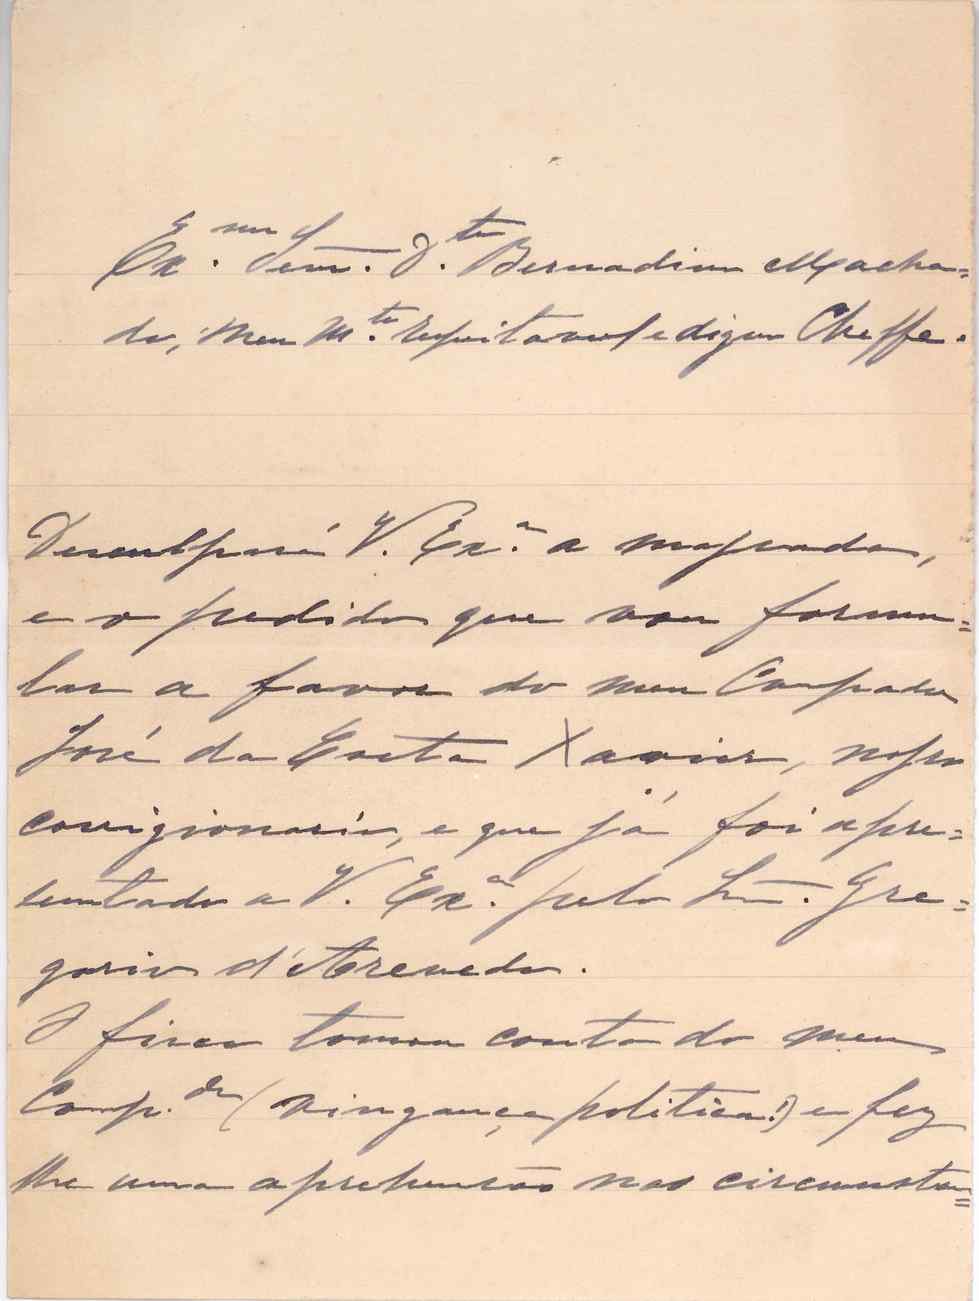 Ex.mo Senr. D.tor Bernadino Macha=
do, Meu M.to respeitavel e digno Cheffe.
Desculpará V. Ex.a a massada,
e o pedido que vou formu=
lar a favor do meu Compadre
José da Costa Xavier, nosso
corrigionario, e que já foi apre=
sentado a V. Ex.a pelo Snr. Gre=
gorio d'Azevedo.
O fisco tomou conta do meu
Comp.dre (vingança politica!) e fez
lhe uma aprehensão nas circumstan=